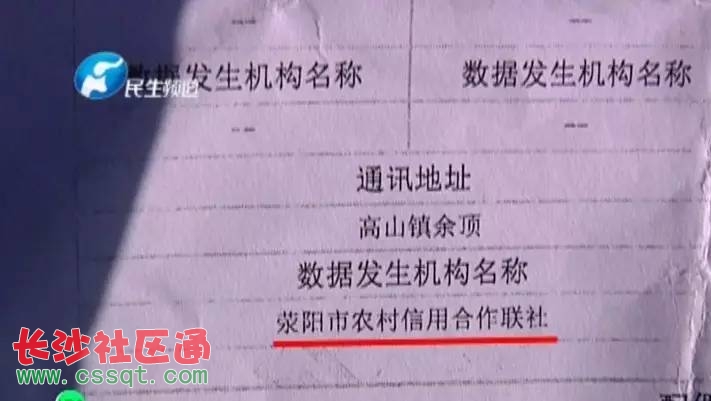 数据发生机构名称 数据发生机构名称
民生频道
-- --
通讯地址
高山镇余顶
数据发生机构名称
荥阳市农村信用合作联社
长沙社区通
www.cssqt.com